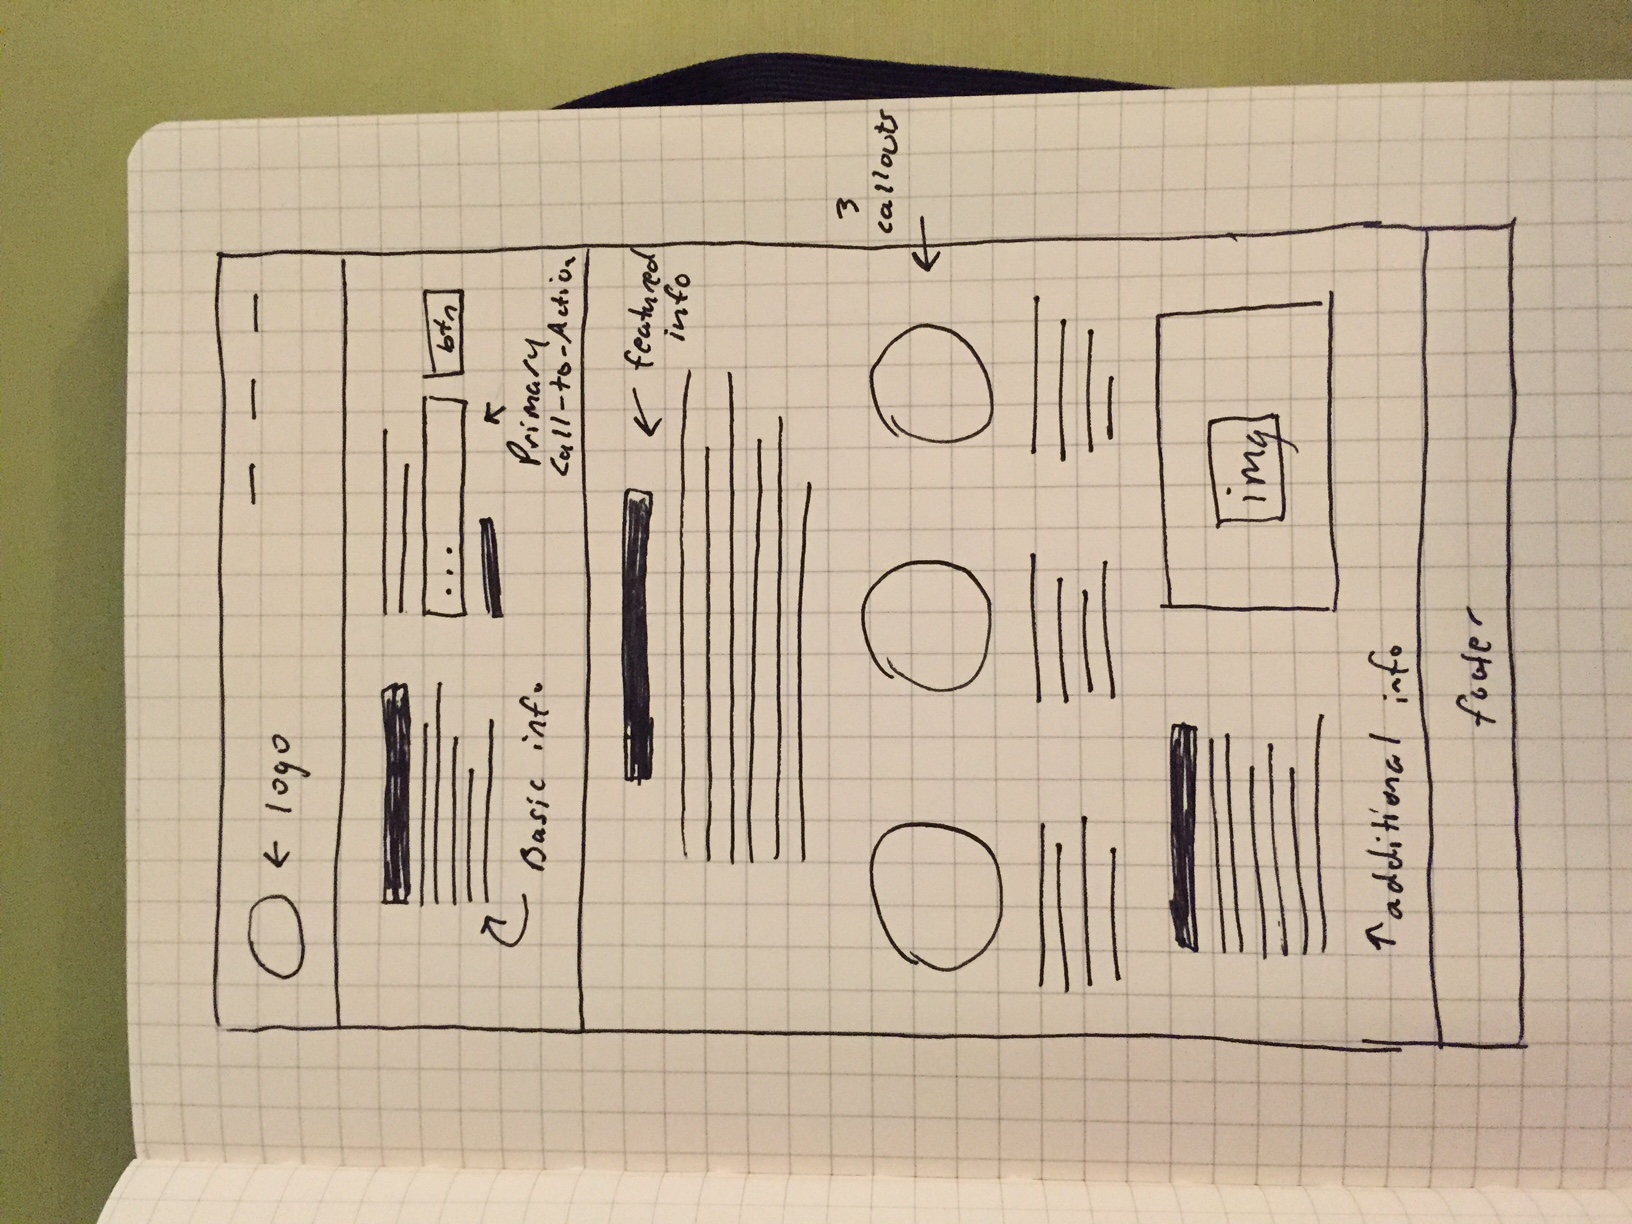 ← logo
...
btn
Basic info
Primary
Call-to-Action
featured
info
3
callouts
img
additional info
footer